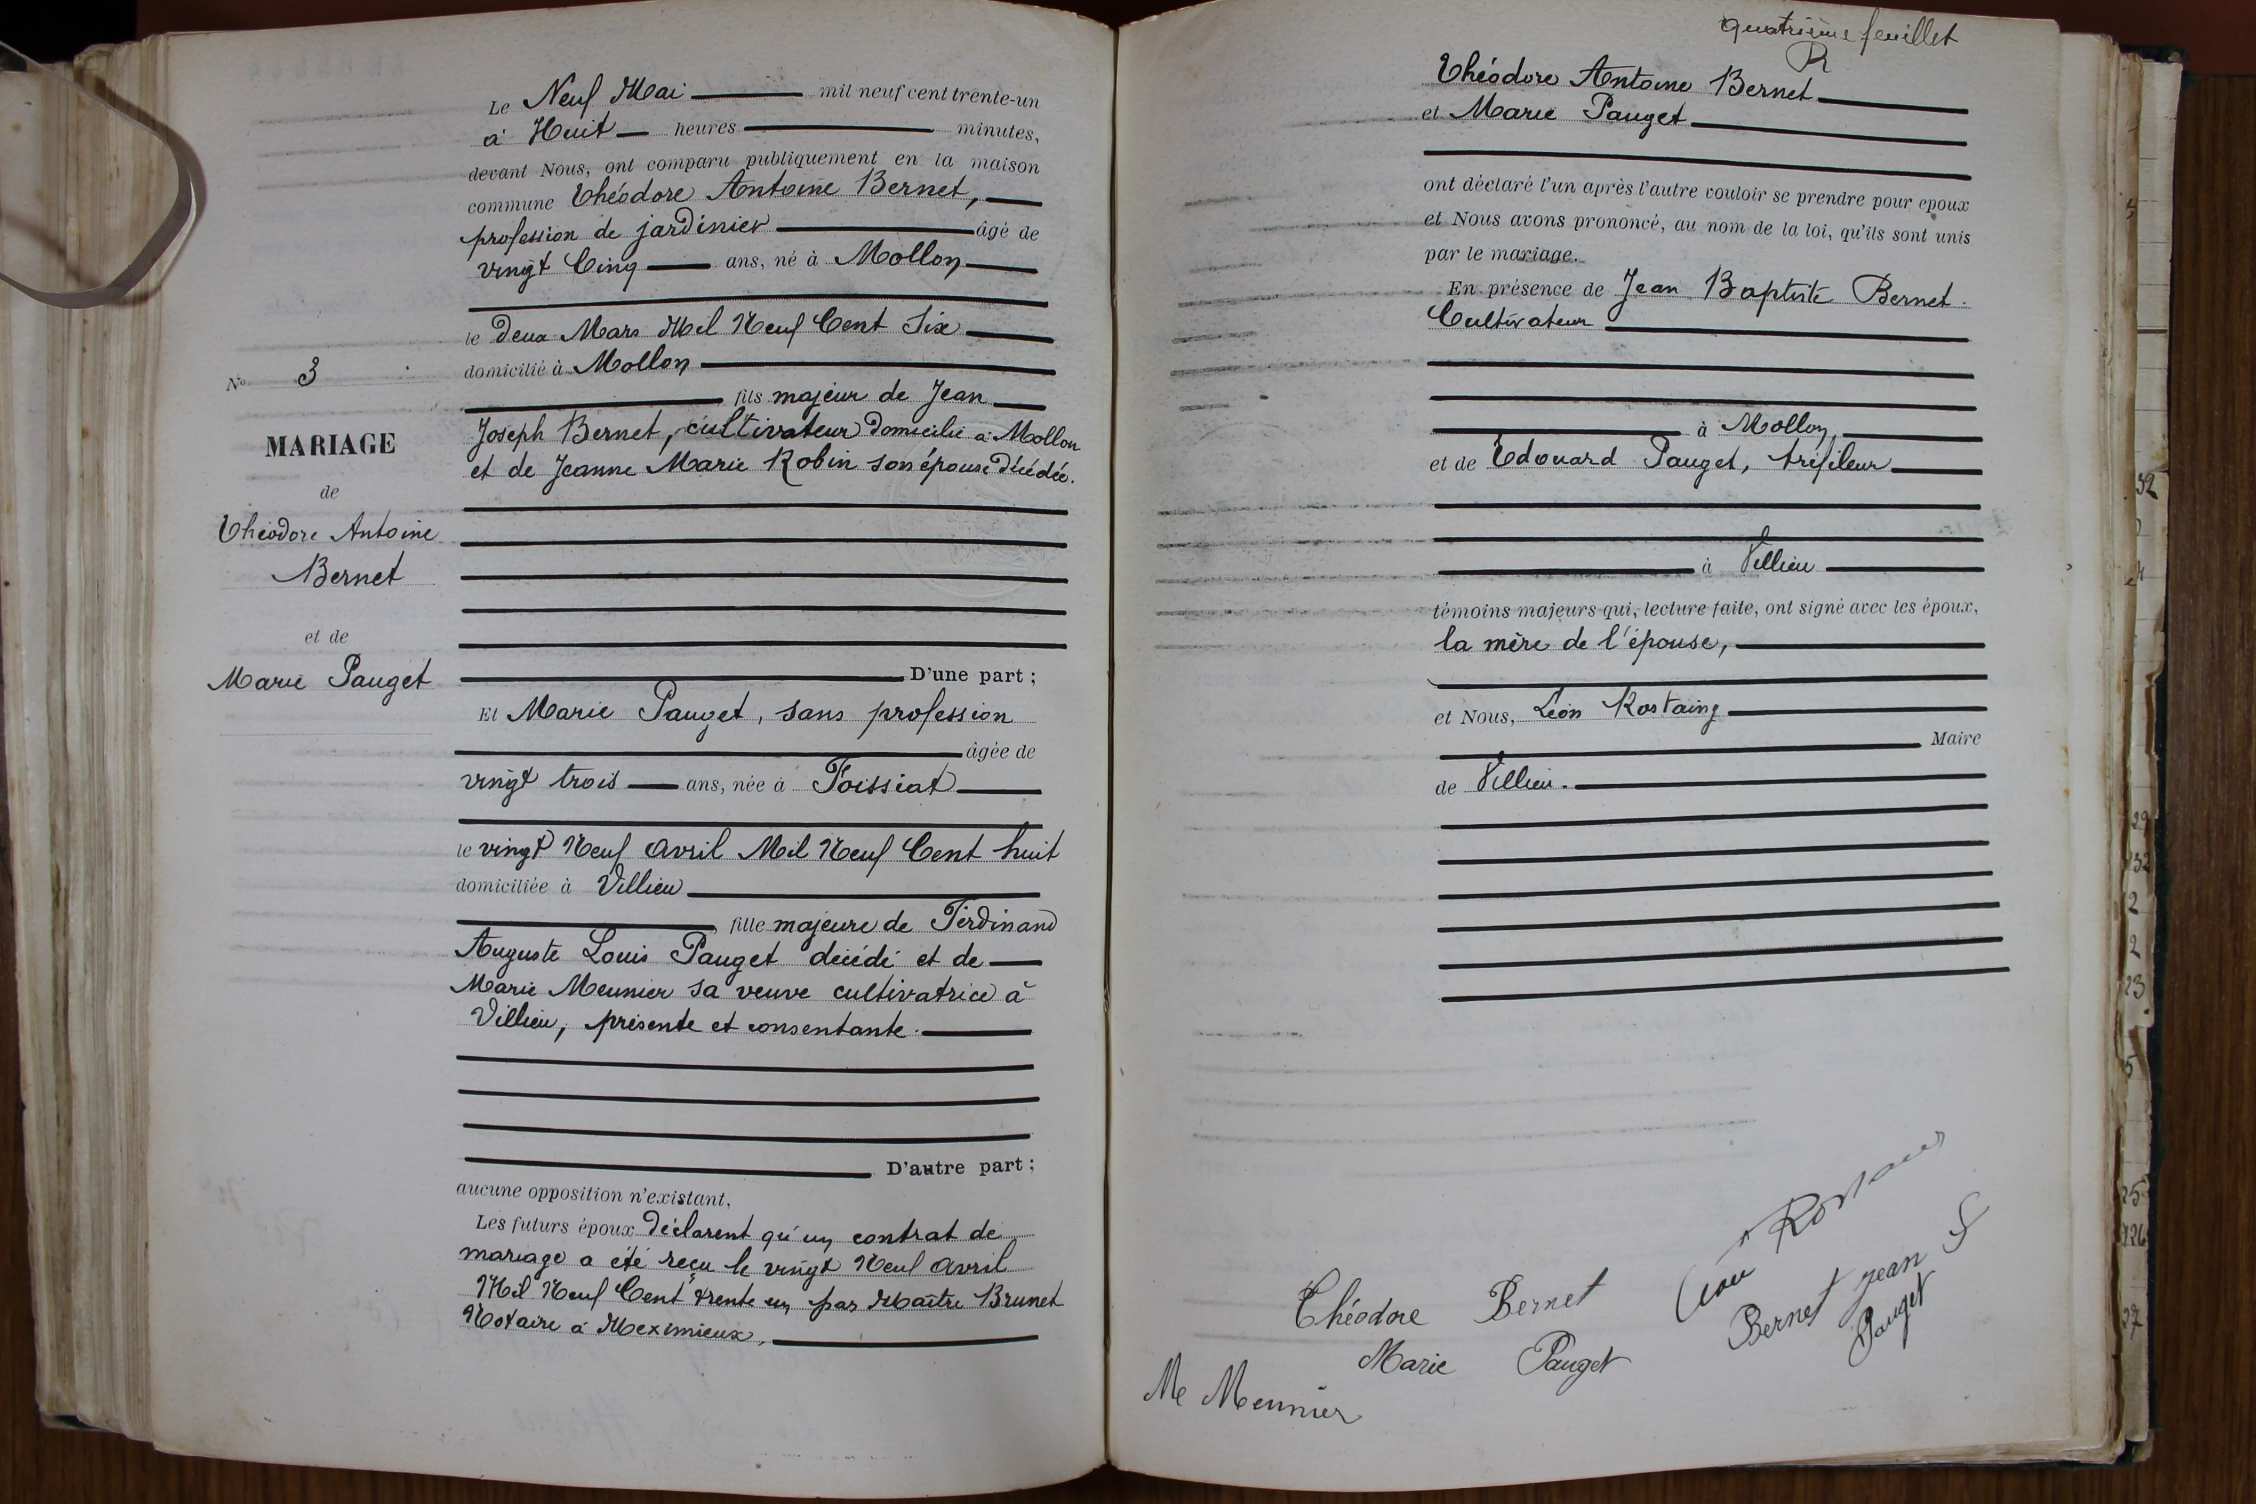 N° 3
MARIAGE
de
Théodore Antoine
Bernet
et de
Marie Pauget
Le Neuf Mai mil neuf cent trente-un
à Huit heures minutes,
devant Nous, ont comparu publiquement en la maison
commune Théodore Antoine Bernet,
profession de jardinier âgé de
vingt Cinq ans, né à Mollon
le deux Mars Mil Neuf Cent Six
domicilié à Mollon
fils majeur de Jean
Joseph Bernet, cultivateur domicilié à Mollon
et de Jeanne Marie Robin son épouse décédée.
D'une part ;
Et Marie Pauget, sans profession
âgée de
vingt trois ans, née à Foissiat
le vingt Neuf avril Mil Neuf Cent huit
domiciliée à Villieu
fille majeure de Ferdinand
Auguste Louis Pauget décédé et de
Marie Meunier sa veuve cultivatrice à
Villieu, présente et consentante.
D'autre part ;
aucune opposition n'existant,
Les futurs époux déclarent qu'un contrat de
mariage a été reçu le vingt Neuf avril
Mil Neuf Cent trente un par Maître Brunet
Notaire à Meximieux,
quatrième feuillet
R
Théodore Antoine Bernet
et Marie Pauget
ont déclaré l'un après l'autre vouloir se prendre pour époux
et Nous avons prononcé, au nom de la loi, qu'ils sont unis
par le mariage.
En présence de Jean Baptiste Bernet
Cultivateur
à Mollon
et de Edouard Pauget, tréfileur
à Villieu
témoins majeurs qui, lecture faite, ont signé avec les époux,
la mère de l'épouse,
et Nous, Léon Rostaing
Maire
de Villieu.
Léon Rostaing
Théodore Bernet
Bernet Jean
Pauget
Marie Pauget
Me Meunier